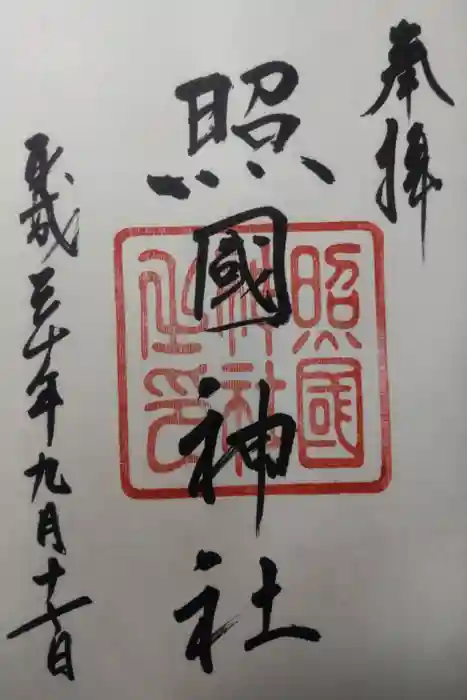 奉拝
照國神社
平成三十年九月十一日
照國
神社
之印